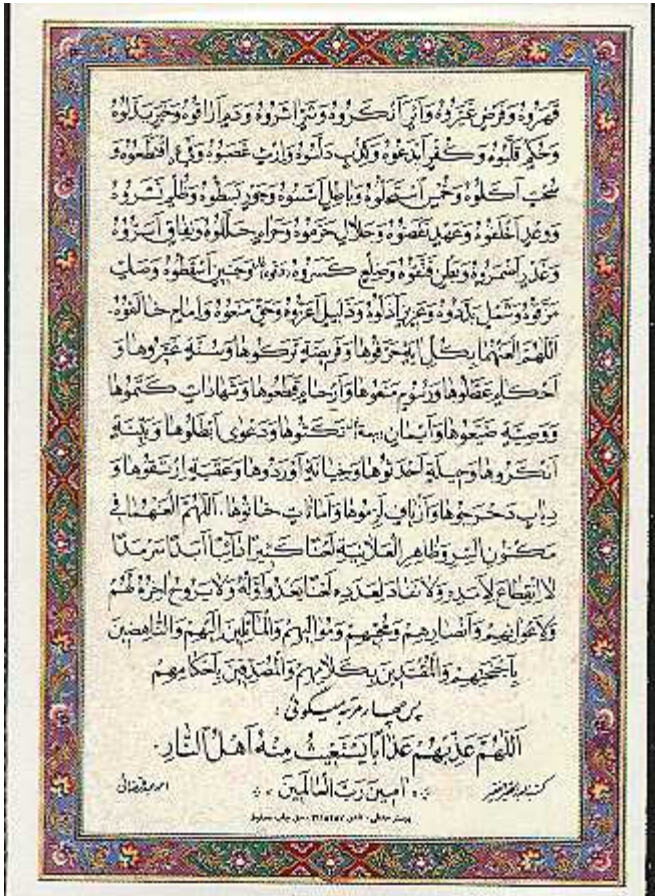 قَهَرُوهُ وَفَرْضٍ غَيَّرُوهُ وَأَثَرٍ أَنْكَرُوهُ وَشَرٍّ اٰثَرُوهُ وَدَمٍ أَرَاقُوهُ وَخَيْرٍ بَدَّلُوهُ
وَحُكْمٍ قَلَّبُوهُ وَكُفْرٍ أَبْدَعُوهُ وَكِذْبٍ دَلَّسُوهُ وَإِرْثٍ غَصَبُوهُ وَفَيْءٍ اقْتَطَعُوهُ وَ
سُحْتٍ أَكَلُوهُ وَخُمْسٍ اسْتَحَلُّوهُ وَبَاطِلٍ أَسَّسُوهُ وَجَوْرٍ بَسَطُوهُ وَظُلْمٍ نَشَرُوهُ
وَوَعْدٍ أَخْلَفُوهُ وَعَهْدٍ نَقَضُوهُ وَحَلَالٍ حَرَّمُوهُ وَحَرَامٍ حَلَّلُوهُ وَنِفَاقٍ أَسَرُّوهُ
وَغَدْرٍ أَضْمَرُوهُ وَبَطْنٍ فَتَقُوهُ وَضِلْعٍ كَسَرُوهُ وَجَنِينٍ أَسْقَطُوهُ وَصَكٍّ
مَزَّقُوهُ وَشَمْلٍ بَدَّدُوهُ وَعَزِيزٍ أَذَلُّوهُ وَذَلِيلٍ أَعَزُّوهُ وَحَقٍّ مَنَعُوهُ وَإِمَامٍ خَالَفُوهُ.
اَللّٰهُمَّ الْعَنْهُمَا بِكُلِّ اٰيَةٍ حَرَّفُوهَا وَفَرِيضَةٍ تَرَكُوهَا وَسُنَّةٍ غَيَّرُوهَا وَ
أَحْكَامٍ عَطَّلُوهَا وَرُسُومٍ مَنَعُوهَا وَأَرْحَامٍ قَطَعُوهَا وَشَهَادَاتٍ كَتَمُوهَا
وَوَصِيَّةٍ ضَيَّعُوهَا وَأَيْمَانٍ نَكَثُوهَا وَدَعْوٰى أَبْطَلُوهَا وَبَيِّنَةٍ
أَنْكَرُوهَا وَحِيلَةٍ أَحْدَثُوهَا وَخِيَانَةٍ أَوْرَدُوهَا وَعَقَبَةٍ اِرْتَقَوْهَا وَ
دِبَابٍ دَحْرَجُوهَا وَأَزْيَافٍ لَزِمُوهَا وَأَمَانَاتٍ خَانُوهَا. اَللّٰهُمَّ الْعَنْهُمَا فِي
مَكْنُونِ السِّرِّ وَظَاهِرِ الْعَلَانِيَةِ لَعْنًا كَثِيرًا دَائِمًا أَبَدًا سَرْمَدًا
لَا انْقِطَاعَ لِأَمَدِهِ وَلَا نَفَادَ لِعَدَدِهِ لَعْنًا يَغْدُو أَوَّلُهُ وَلَا يَرُوحُ اٰخِرُهُ لَهُمْ
وَلِأَعْوَانِهِمْ وَأَنْصَارِهِمْ وَمُحِبِّيهِمْ وَمُوَالِيهِمْ وَالْمَائِلِينَ إِلَيْهِمْ وَالنَّاهِضِينَ
بِأَجْنِحَتِهِمْ وَالْمُقْتَدِينَ بِكَلَامِهِمْ وَالْمُصَدِّقِينَ بِأَحْكَامِهِمْ
پس چهار مرتبه میگوئی :
اَللّٰهُمَّ عَذِّبْهُمْ عَذَابًا يَسْتَغِيثُ مِنْهُ أَهْلُ النَّارِ.
اٰمِينَ رَبَّ الْعَالَمِينَ